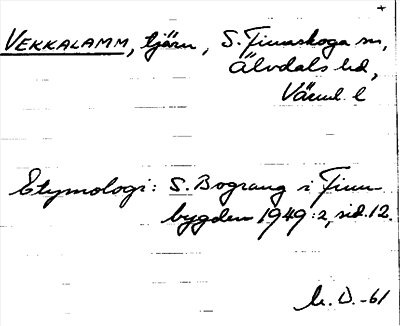 VEKKALAMM, tjärn, S. Finnskoga sn,
Älvdals hd,
Värml. l
Etymologi: S. Bograng i Finn-
bygden 1949:2, sid. 12.
M. D. -61